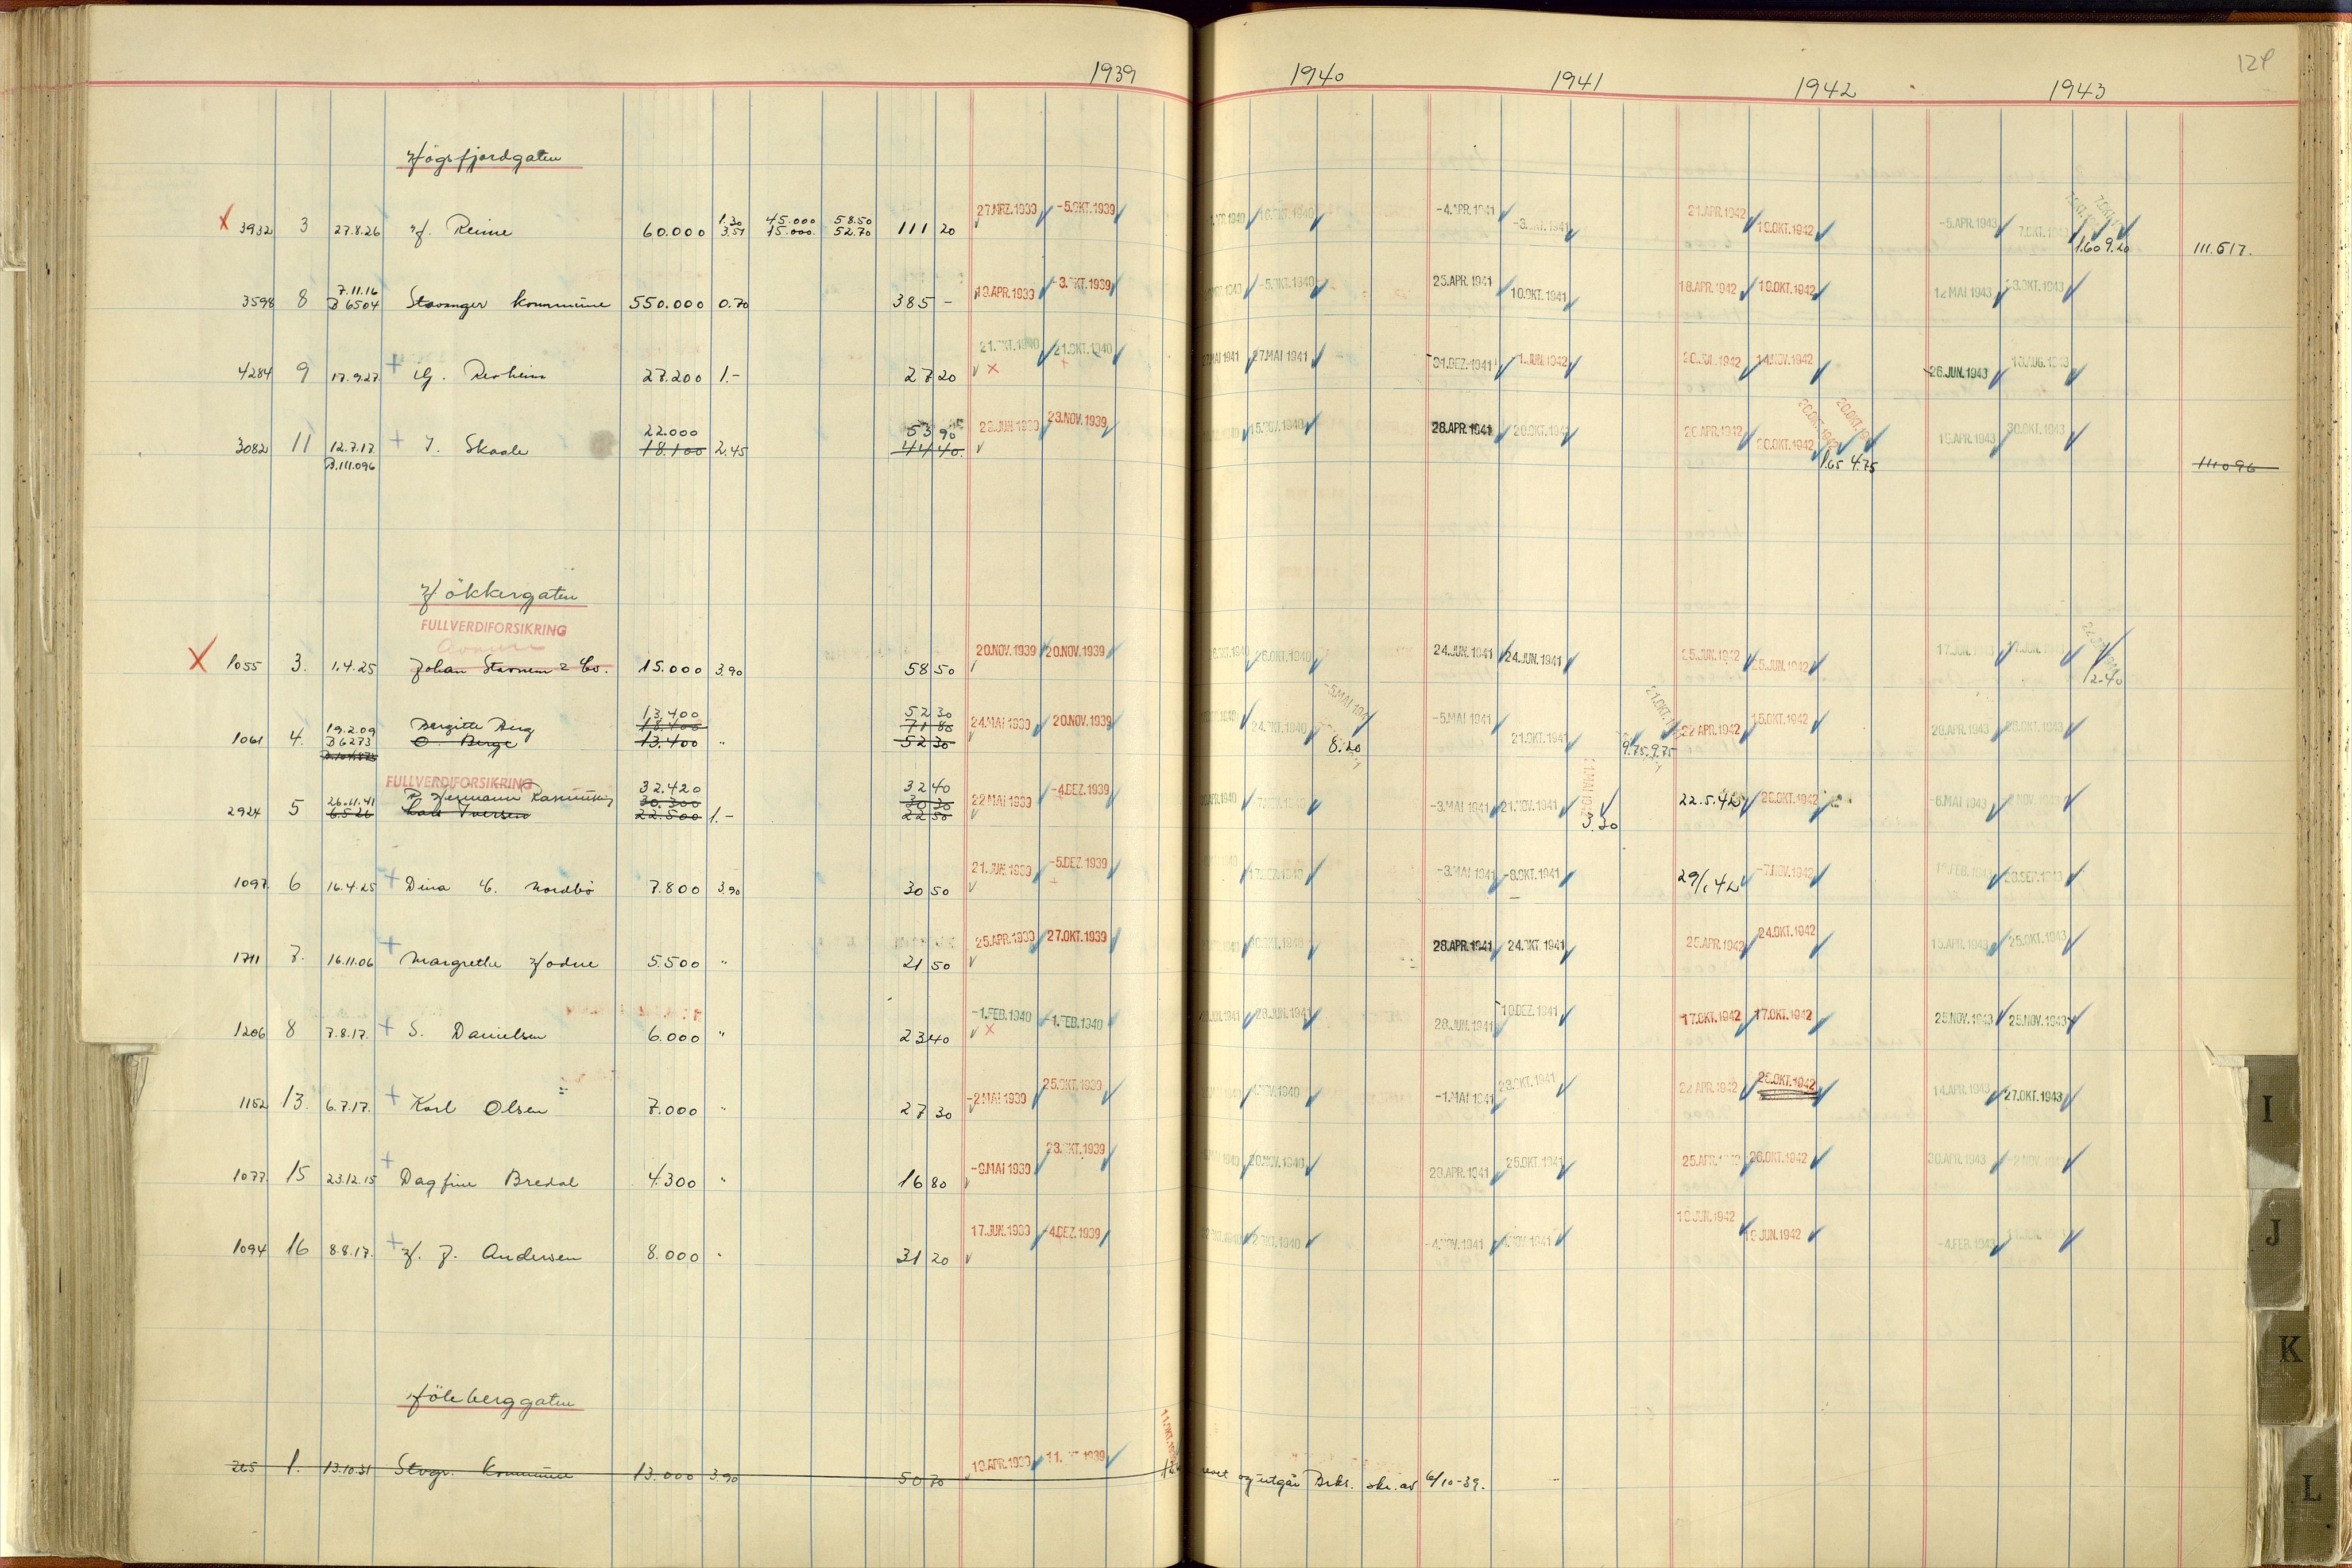 1939 1940 1941 1942 1943
Högsfjordgaten
X 3932 3 27.8.26 H. Reime 60.000 1.30 45.000 58.50 111 20 27.MRZ.1939 -5.OKT.1939 -4.APR.1941 -3.OKT.1941 21.APR.1942 19.OKT.1942 -5.APR.1943 1.60 9.20 111.517.
3.51 15.000. 52.70
3598 8 7.11.16 Stavanger kommune 550.000 0.70 385 - 19.APR.1939 -3.OKT.1939 -5.OKT.1940 25.APR.1941 10.OKT.1941 18.APR.1942 19.OKT.1942 12 MAI 1943
B 6504
4284 9 17.9.27 + 27.200 1.- 27 20 21.OKT.1940 21.OKT.1940 27.MAI 1941 27.MAI 1941 31.DEZ.1941 -1.JUN.1942 20.JUL.1942 14.NOV.1942 26.JUN.1943 18.AUG.1943
3082 11 12.7.17 + J. Skaale 22.000 53 90 23.NOV.1939 15.NOV.1940 28.APR.1941 20.OKT.1941 20.APR.1942 20.OKT.1942 20.OKT.1942 20.OKT.1942 19.APR.1943 30.OKT.1943
B.111.096 18.100 2.45 44 40. 1.65 4.75 111096
Hökkergaten
FULLVERDIFORSIKRING
X 1055 3. 1.4.25 Johan Stavnem & Co. 15.000 3.90 58 50 20.NOV.1939 20.NOV.1939 24.JUN.1941 24.JUN.1941 25.JUN.1942 25.JUN.1942 17.JUN.1943 17.JUN.1943 12.40
1061 4. 19.2.09 Bergitte Berg 13.400 52 30 24.MAI 1939 20.NOV.1939 24.OKT.1940 -5.MAI 1941 -5.MAI 1941 21.OKT.1941 21.OKT. 22 APR.1942 15.OKT.1942 28.APR.1943
B 6273 O. Berge 18.400 71 80
13.400 " 52 30 8.20 9.75 9.75
FULLVERDIFORSIKRING
2924 5 26.11.41 Hermann Rasmussen 32.420 32 40 22 MAI 1939 -4.DEZ.1939 -3.MAI 1941 21.NOV.1941 22.5.42 26.OKT.1942 -6.MAI 1943
6.5.26 Karl Iversen 30.300 30 30
22.500 1.- 22 50 3.30
1097 6 16.4.25 + Dina C. Nordbö 7.800 3.90 30 50 21.JUN.1939 -5.DEZ.1939 -3.MAI 1941 -8.OKT.1941 29/1 42 -7.NOV.1942 28.SEP.1943
1711 7. 16.11.06 + Margrethe Hodne 5.500 " 21 50 25.APR.1939 27.OKT.1939 28.APR.1941 24.OKT.1941 25.APR.1942 24.OKT.1942 15.APR.1943 25.OKT.1943
1206 8 7.8.17. + S. Danielsen 6.000 " 23 40 -1.FEB.1940 -1.FEB.1940 28.JUN.1941 28.JUN.1941 10.DEZ.1941 17.OKT.1942 17.OKT.1942 25.NOV.1943 25.NOV.1943
1152 13. 6.7.17. + Karl Olsen 7.000 " 27 30 -2 MAI 1939 25.OKT.1939 -1.MAI 1941 23.OKT.1941 22 APR.1942 26.OKT.1942 14.APR.1943 27.OKT.1943
1077 15 23.12.15 + Dagfine Bredal 4.300 " 16 80 -9.MAI 1939 23.OKT.1939 20.NOV.1940 28.APR.1941 25.OKT.1941 25.APR.1942 26.OKT.1942 30.APR.1943
1094 16 8.8.17. + H. J. Andersen 8.000 " 31 20 17.JUN.1939 -4.DEZ.1939 -4.NOV.1941 19 JUN.1942 19 JUN.1942 -4.FEB.1943
Höleberggaten
265 1. 13.10.31 Stvgr. Kommune 13.000 3.90 50 70 19.APR.1939 revet og utgår Brks. skr. av 6/10-39.
I
J
K
L